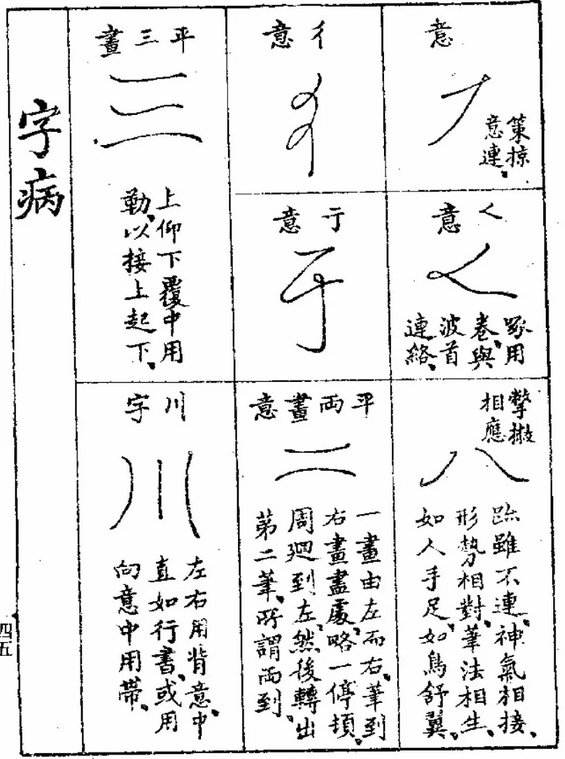 意
策掠
意連、
ㄑ意
啄用
卷與
波首
連絡、
相應
跡雖不連、神氣相接、
形勢相對、筆法相生、
如人手足、如鳥舒翼、
彳意
亍意
平兩畫意
一畫由左而右、筆到
右畫盡處、略一停頓、
周廻到左、然後轉出
第二筆、所謂兩到、
平三畫
三
上仰下覆中用
勒、以接上起下、
川字
川
左右用背意、中
直如行書、或用
向意中用帶、
字病
四五